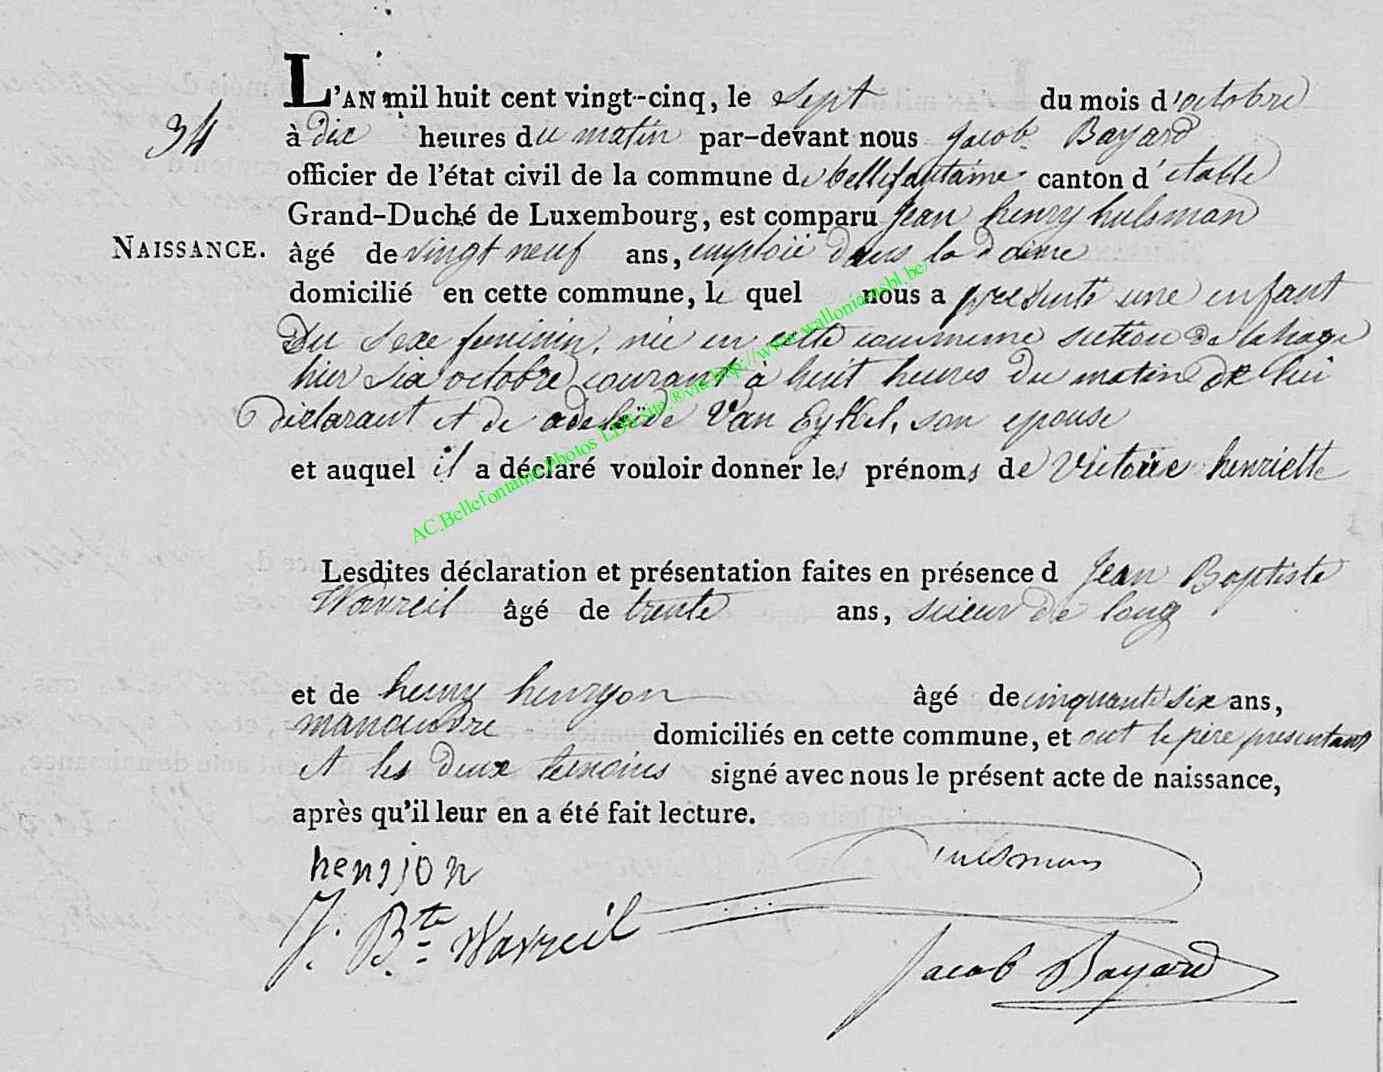 L'AN mil huit cent vingt-cinq, le sept du mois d'octobre
34
à dix heures du matin par-devant nous Jacob Bayard
officier de l'état civil de la commune de bellefontaine canton d'étalle
Grand-Duché de Luxembourg, est comparu Jean henry hulsman
NAISSANCE.
âgé de vingt neuf ans, emploié dans la doine
domicilié en cette commune, le quel nous a presenté une enfant
du sexe feminin, née en cette commune section de lahage
hier six octobre courant à huit heures du matin de lui
déclarant et de adelaïde Van Eykel, son epouse
et auquel il a déclaré vouloir donner les prénoms de Victoire henriette
AC Bellefontaine photos LDR site ® via http://www.wallonia-asbl.be/
Lesdites déclaration et présentation faites en présence d Jean Baptiste
Wavreil âgé de trente ans, sieur de long
et de henry henryon âgé de cinquante six ans,
manouvre domiciliés en cette commune, et ont le père présentant
et les deux temoins signé avec nous le présent acte de naissance,
après qu'il leur en a été fait lecture.
henrion
hulsman
J. Bte Wavreil
Jacob Bayard